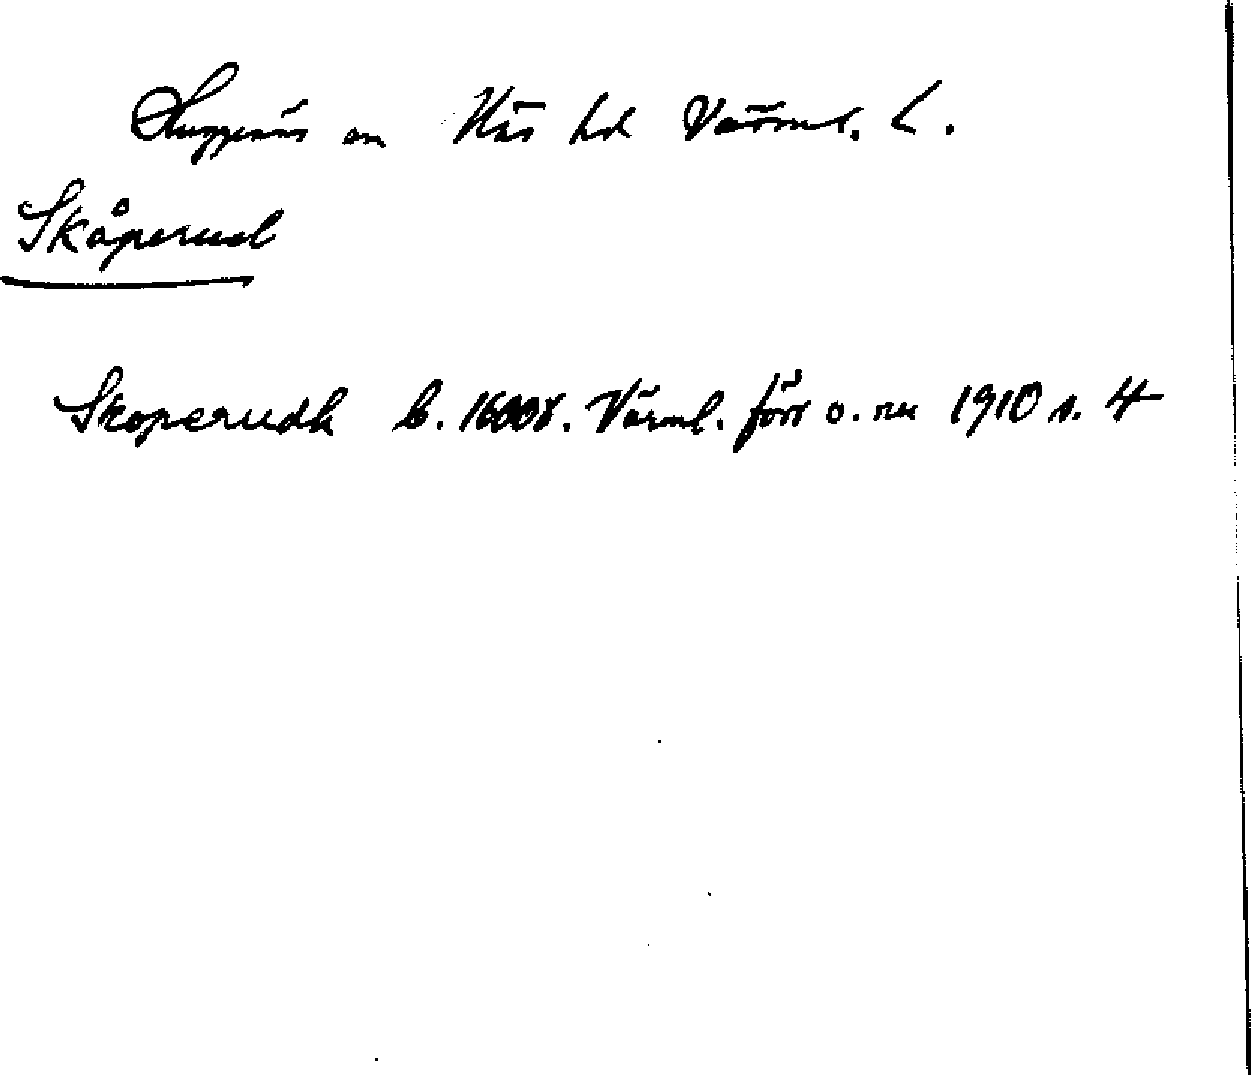 Huggenäs sn Näs hd Värml. L.
Skåperud
Skoperudh b. 1600t. Värml. förr o. nu 1910 s. 4